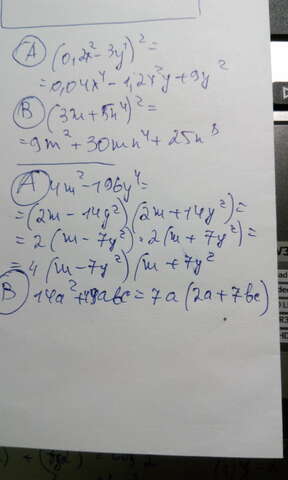 A (0,2x² - 3y)² =
= 0,04x⁴ - 1,2x²y + 9y²
B (3m + 5n⁴)² =
= 9m² + 30mn⁴ + 25n⁸
A 4m² - 196y⁴ =
= (2m - 14y²)(2m + 14y²) =
= 2(m - 7y²) · 2(m + 7y²) =
= 4(m - 7y²)(m + 7y²
B 14a² + 49abc = 7a(2a + 7bc)